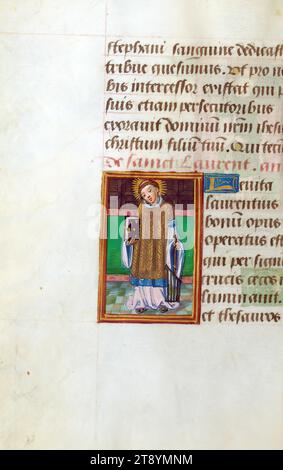 stephani sanguine dedicast
tribue quesumus. Vt pro no
bis intercessor existat qui pro
suis etiam persecutoribus
exorauit dominum nrm ihesū
christum filium tuum. Qui tecū
de sainct Laurent. an
Leuita
laurentius
bonum opus
operatus est
qui per signū
crucis cecos il
luminauit
et thesauros
alamy
Image ID: 2T8YMNM
www.alamy.com